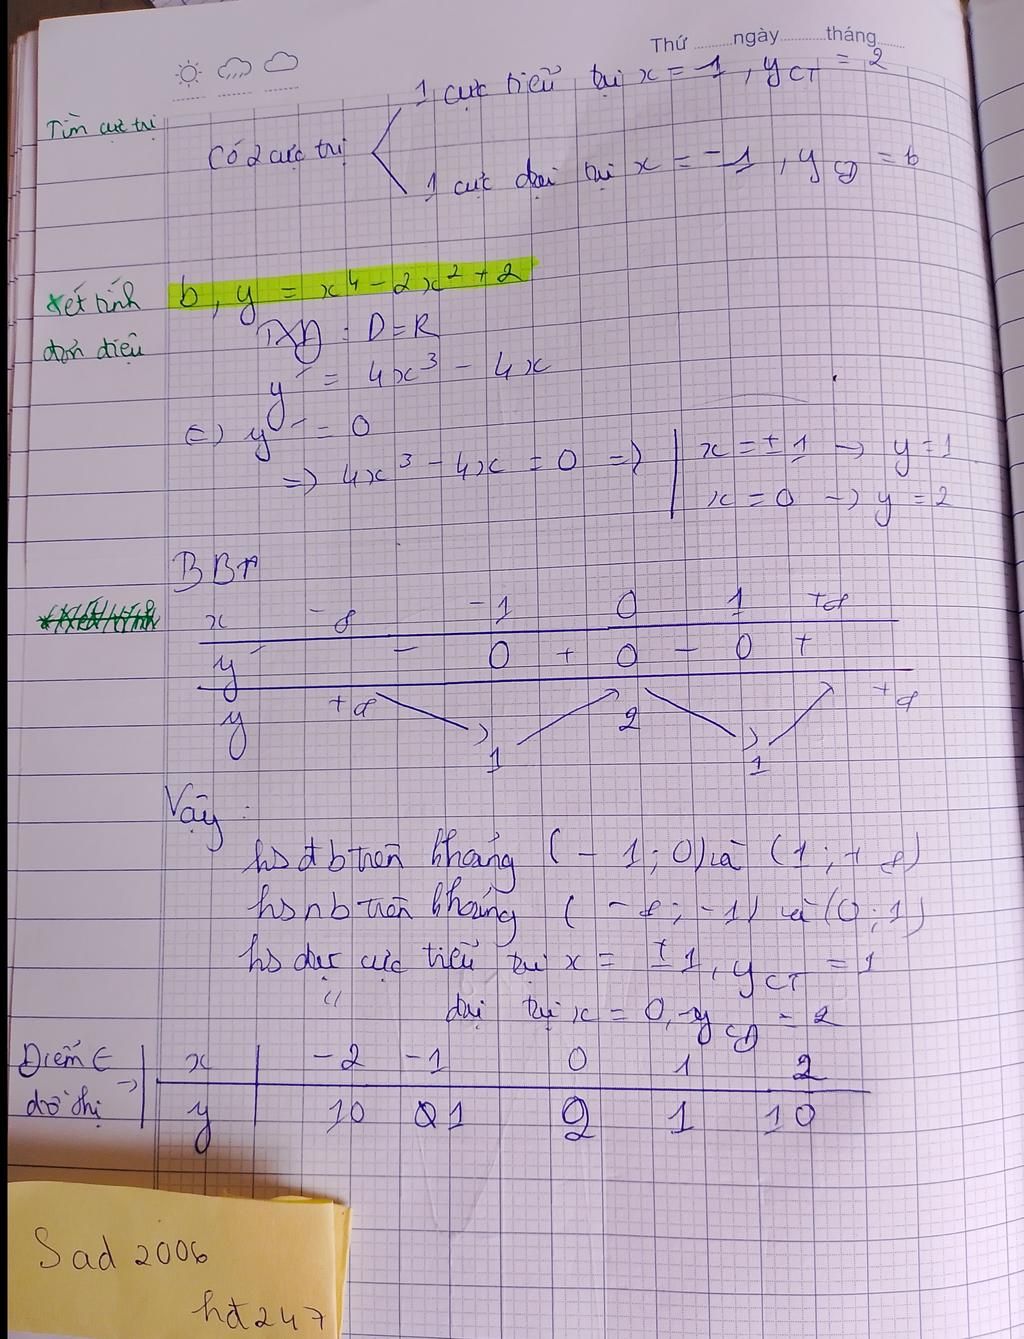 Thứ ......... ngày ......... tháng ......
1 cực tiểu tại x = 1, yCT = 2
Tìm cực trị
Có 2 cực trị
1 cực đại tại x = -1, yCĐ = 6
b, y = x⁴ - 2x² + 2
Xét tính
đơn điệu
TXĐ : D = R
y' = 4x³ - 4x
y' = 0
=> 4x³ - 4x = 0 => x = ± 1 -> y = 1
x = 0 -> y = 2
BBT
x -∞ -1 0 1 +∞
y' - 0 + 0 - 0 +
y +∞ 1 2 1 +∞
Vậy :
hs đb trên khoảng (-1; 0) và (1; +∞)
hs nb trên khoảng (-∞; -1) và (0; 1)
hs đạt cực tiểu tại x = ±1, yCT = 1
" đại tại x = 0, yCĐ = 2
Điểm ∈
đồ thị
x -2 -1 0 1 2
y 10 1 2 1 10
Sad 2006
hđ247